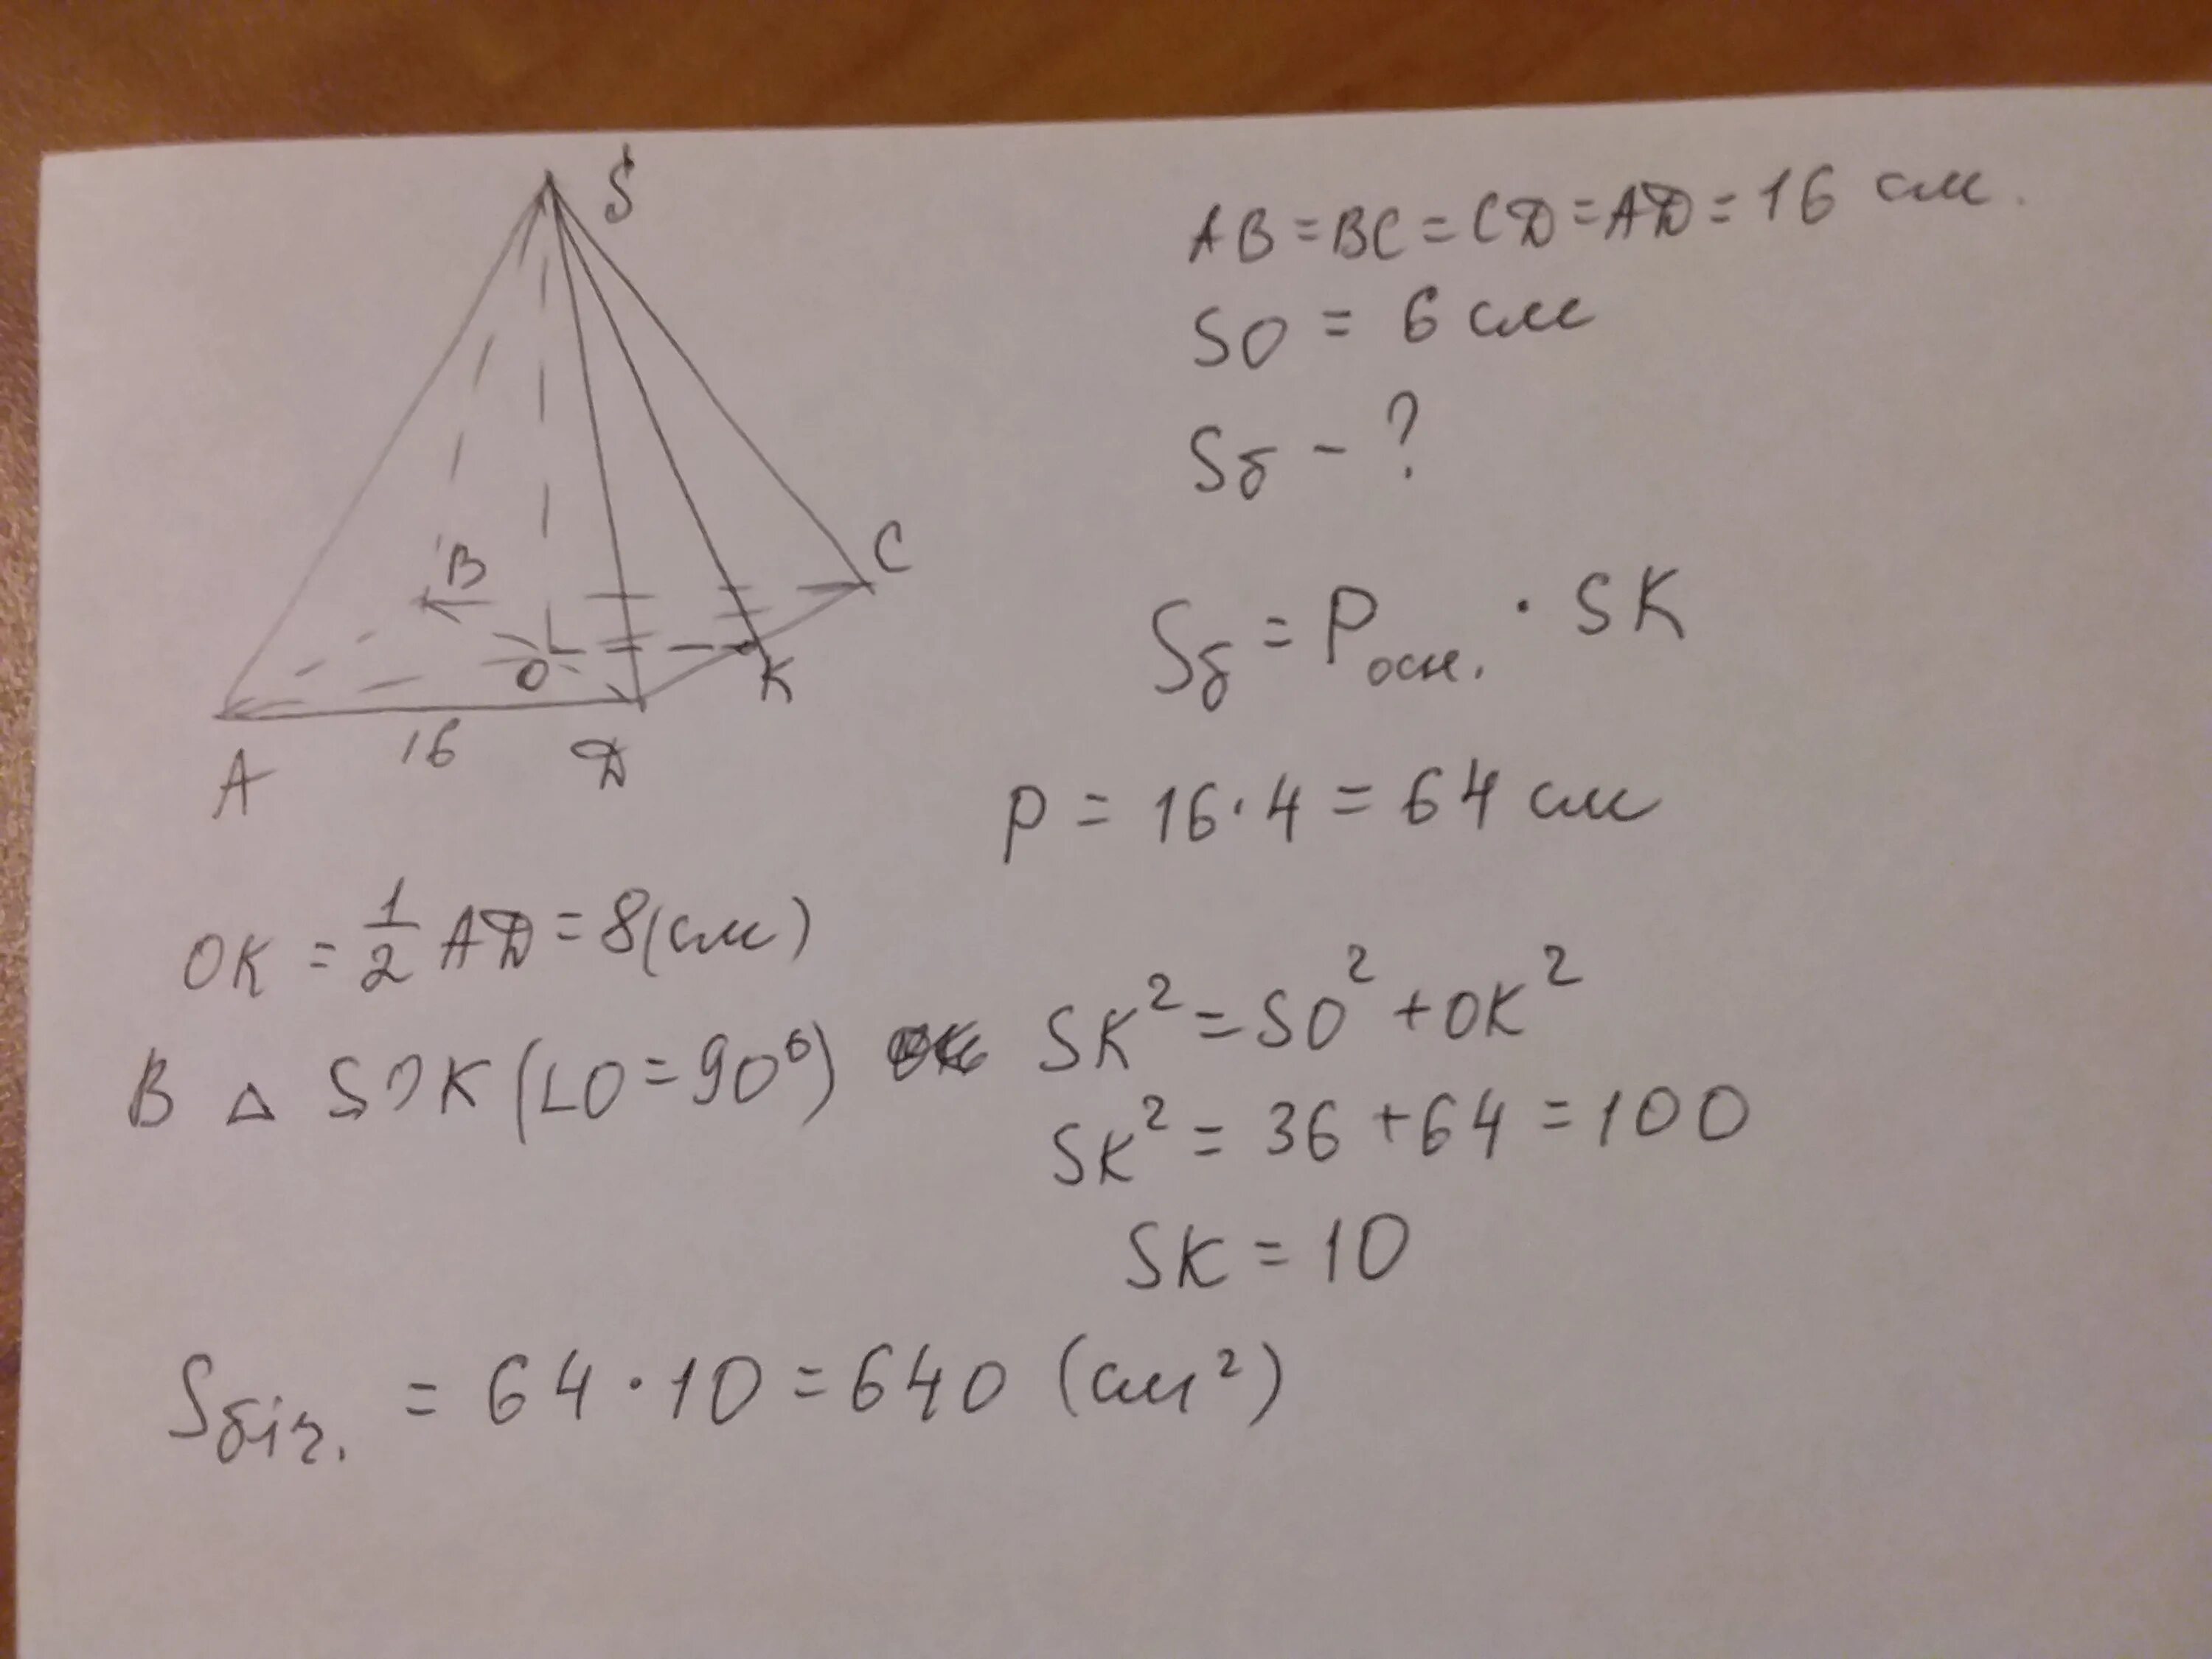 S
B
C
O
K
16
A
D
AB = BC = CD = AD = 16 см.
SO = 6 см
Sб - ?
Sб = Pосн. · SK
P = 16 · 4 = 64 см
OK = 1/2 AD = 8 (см)
В △ SOK (∠O = 90°)
SK² = SO² + OK²
SK² = 36 + 64 = 100
SK = 10
Sбіч. = 64 · 10 = 640 (см²)